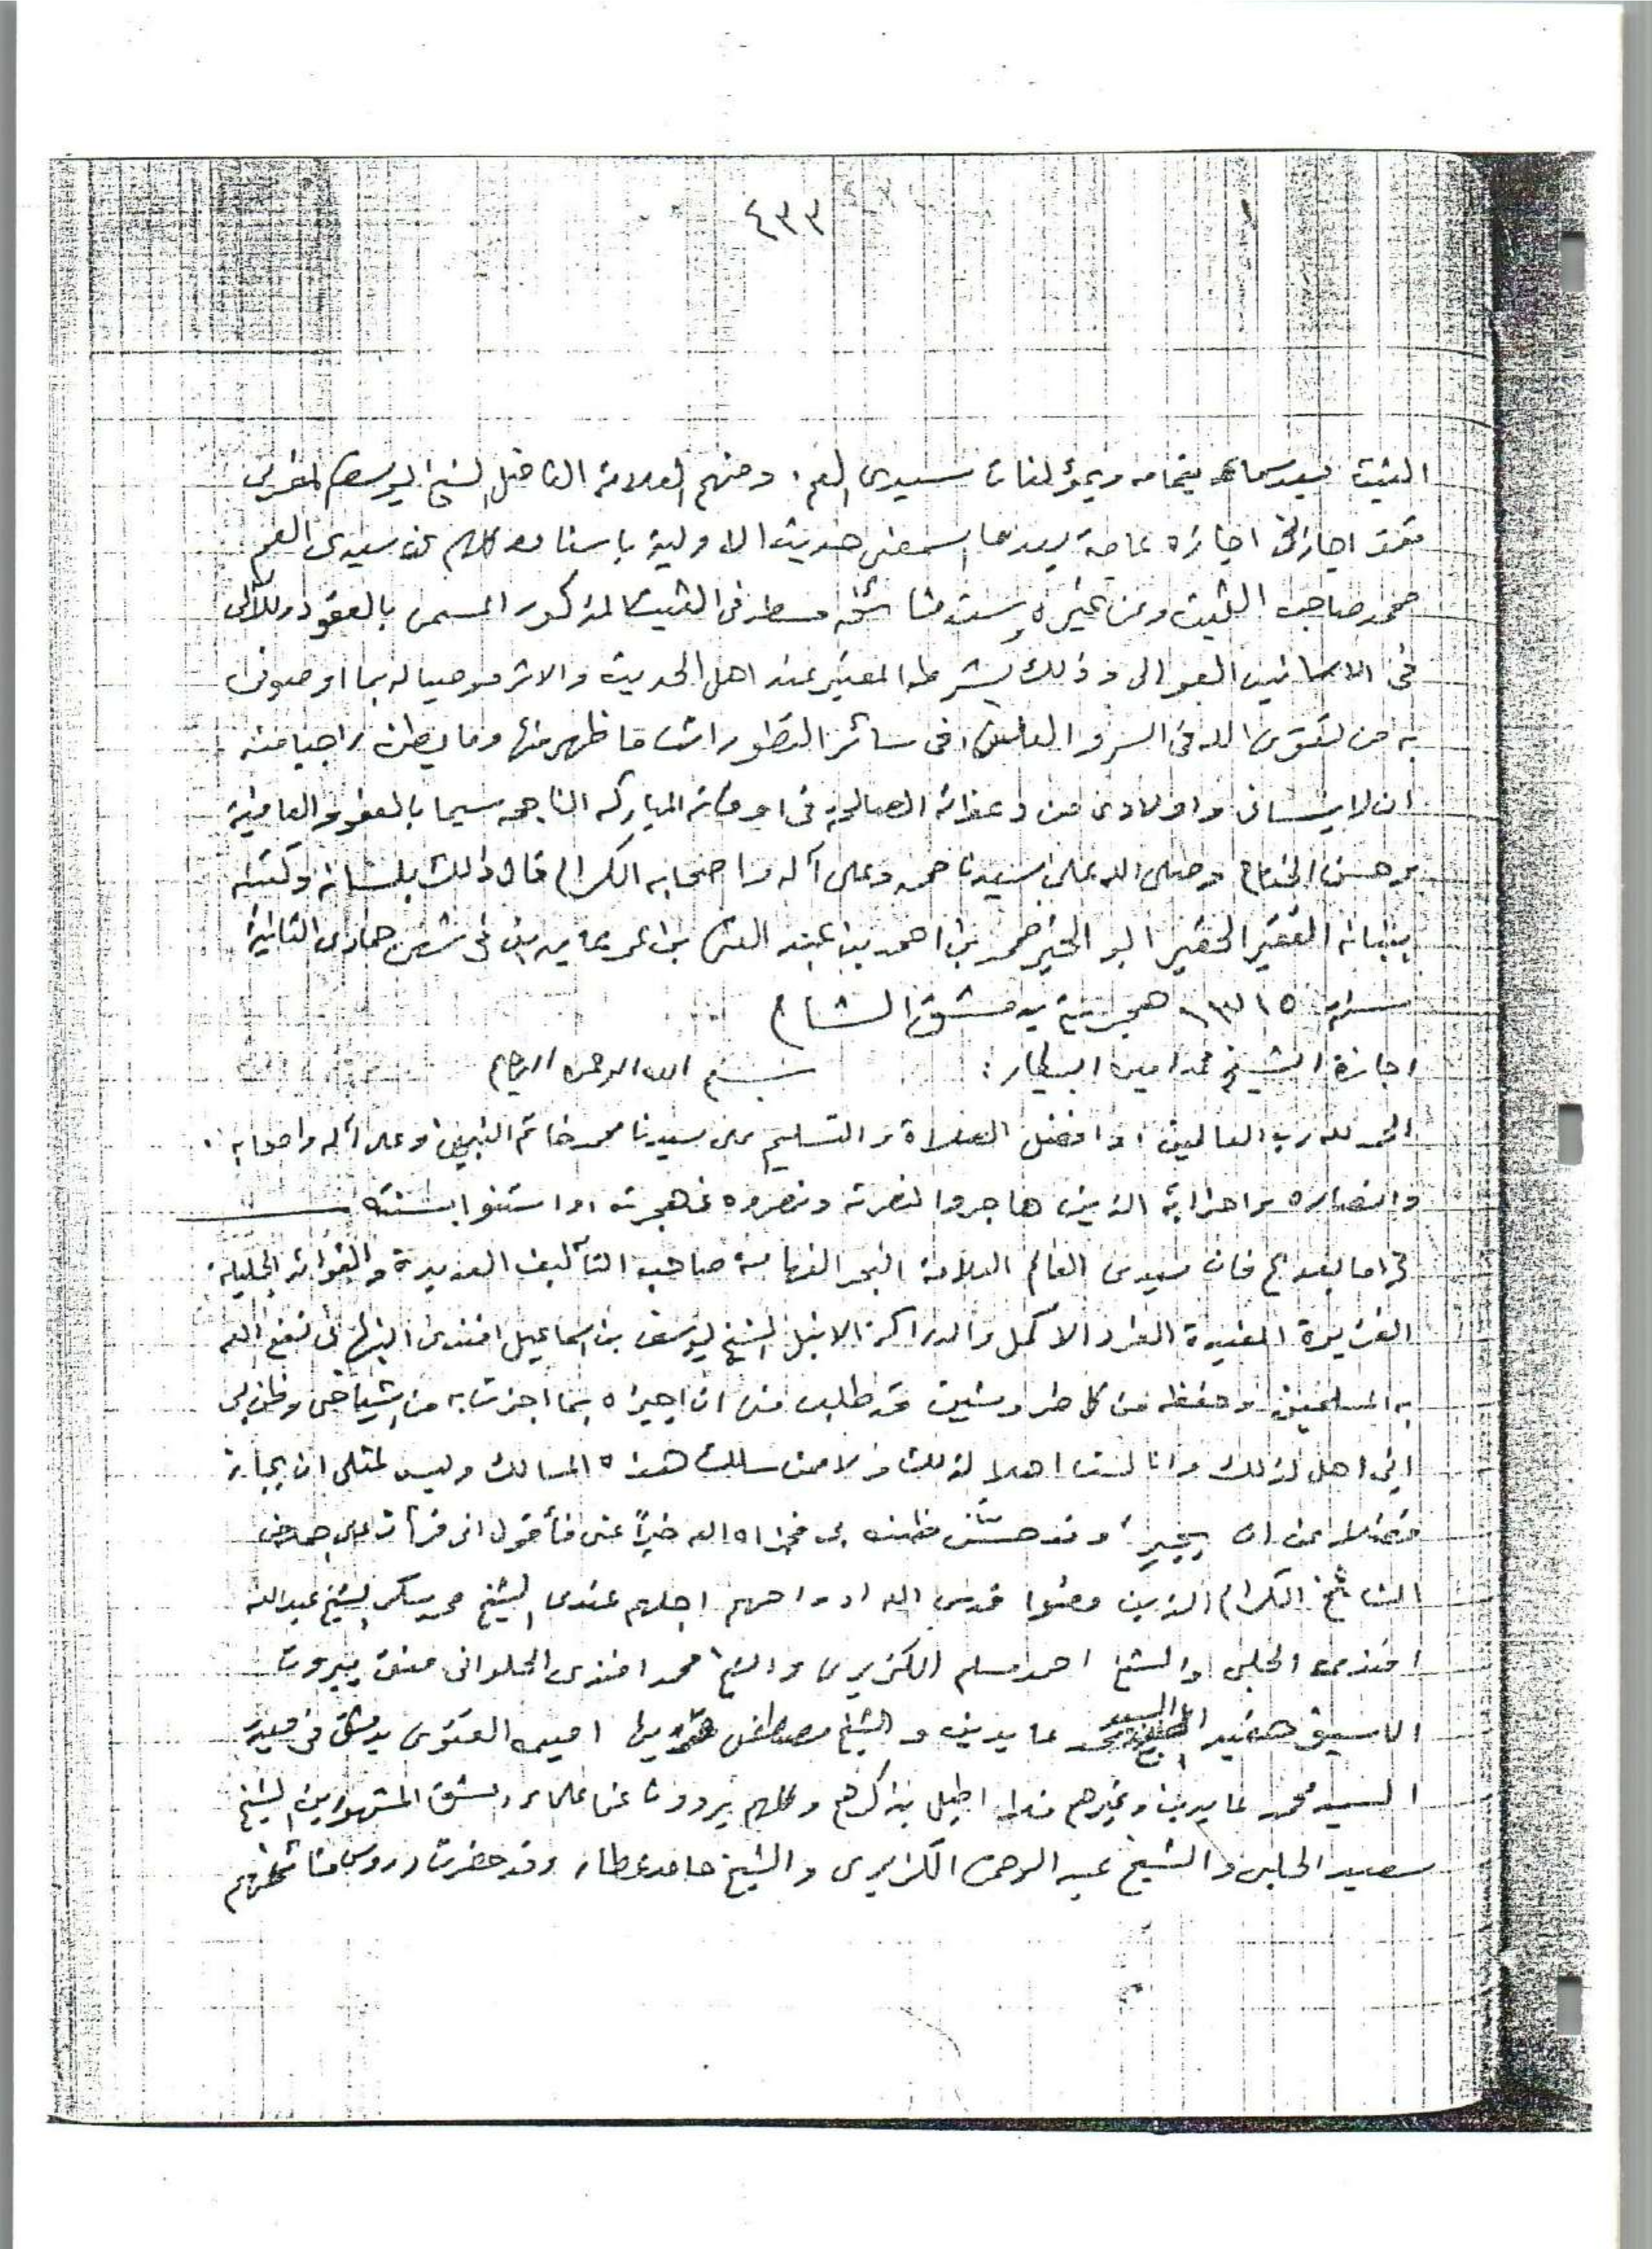 ٤٣٣
الثبت بعد سماعه بتمامه وبمؤلفات سيدى العم، ومنهم العلامة الفاضل الشيخ يوسف المغربى
فقد اجازنى اجازه عامة بعدما اسمعنى حديث الاولية باسناده كلهم عن سيدى العم
محمد صاحب الثبت وعن غيره وسند مشائخه مسطر فى الثبت المذكور المسمى بالعقود اللآلى
فى الاسانيد العوالى وذلك بشرطه المعتبر عند اهل الحديث والاثر موصيا له بما اوصونى
به من تقوى الله فى السر والعلن، فى سائر التطورات ما ظهر منها وما بطن راجيا منه
ان لا ينسانى واولادى من دعواته الصالحة فى اوقاته المباركه الناجحه سيما بالعفو والعافية
وحسن الختام وصلى الله على سيدنا محمد وعلى آله واصحابه الكرام قال ذلك بلسانه وكتبه
ببنانه الفقير الحقير ابو الخير محمد بن احمد بن عبد الغنى بن عمر عابدين فى شهر جمادى الثانية
سنة ١٣١٥ هجرية بدمشق الشام
اجازة الشيخ محمد امين البيطار : بسم الله الرحمن الرحيم
الحمد لله رب العالمين، وافضل الصلاة والتسليم على سيدنا محمد خاتم النبيين وعلى آله واصحابه .
وانصاره واحزابه الذين هاجروا لنصرته ونصروه فى هجرته، واستنوا بسنته
اما بعد فان سيدى العالم العلامة البحر الفهامة صاحب التآليف العديدة والفوائد الجليلة
الغزيرة المفيدة الفرد الاكمل والدراكة الانبل الشيخ يوسف بن اسماعيل افندى النبهانى نفع الله
به المسلمين وحفظه من كل ضر وشين قد طلب منى ان اجيزه بما اجزت به من اشياخى وظن بى
انى اهل لذلك وانا لست اهلا لذلك ولا ممن سلك هذه المسالك وليس لمثلى ان يجاز
فضلا عن ان يجيز، وقد حسّن ظنه بى فجزاه الله خيراً عنى فأقول انى قرأت على جملة من
المشائخ الكرام الذين مضوا قدس الله ارواحهم اجلهم عندى الشيخ محمد سكر والشيخ عبدالله
افندى الحلبى والشيخ احمد مسلم الكزبرى والشيخ محمد افندى الحلوانى مفتى بيروت
الاسبق حفيد السيد محمد عابدين والشيخ مصطفى امين الفتوى بدمشق فى
السيد محمد عابدين وغيرهم فلا اطيل بذكرهم وكلهم يروون عن علماء دمشق المشهورين الشيخ
سعيد الحلبى والشيخ عبد الرحمن الكزبرى والشيخ حامد عطار وقد حضرت دروس مشائخهم